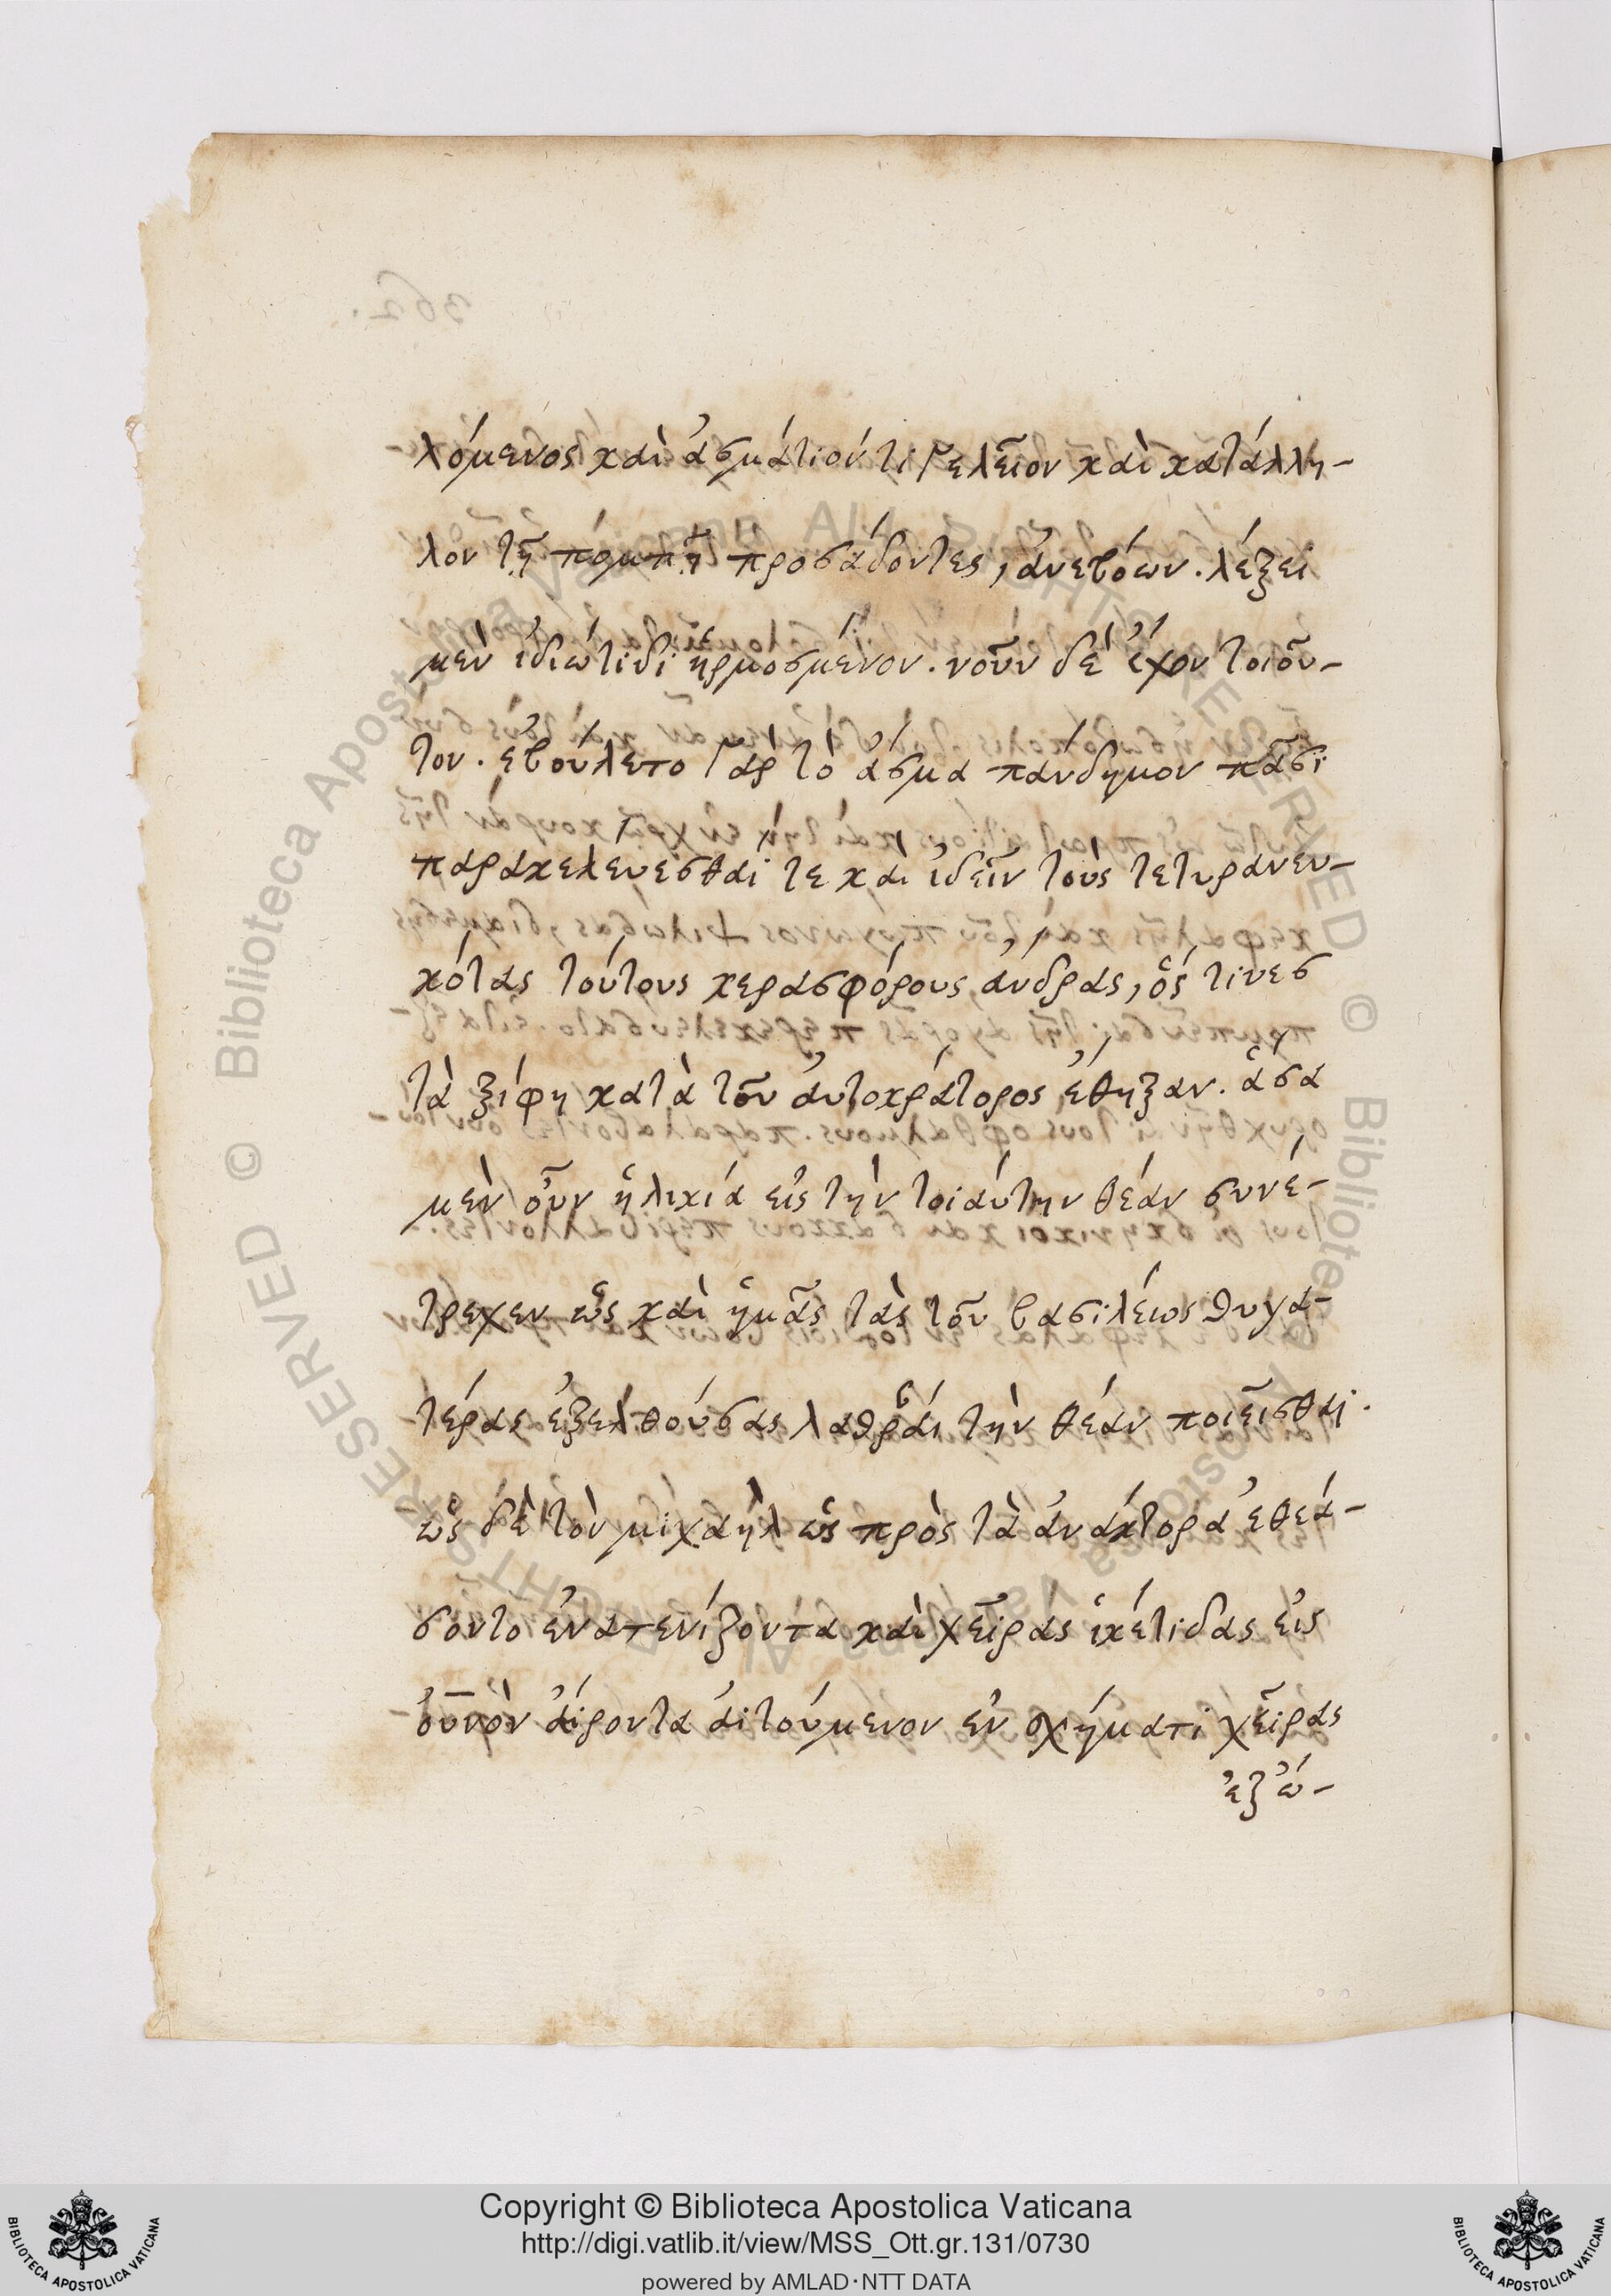 λόμενος καὶ ἀσμάτιόν τι γελεῖον καὶ κατάλλη-
λον τῇ πομπῇ προσάδοντες, ἀνεβόων. λέξει
μὲν ἰδιώτιδι ἡρμοσμένον. νοῦν δὲ ἔχον τοιοῦ-
τον. ἐβούλετο γὰρ τὸ ἄσμα πάνδημον πᾶσι
παρακελεύεσθαί τε καὶ ἰδεῖν τοὺς τετυρανευ-
κότας τούτους κερασφόρους ἄνδρας, οἵ τινες
τὰ ξίφη κατὰ τοῦ αὐτοκράτορος ἔθηξαν. ἅσα
μὲν οὖν ἡλικία εἰς τὴν τοιαύτην θέαν συνέ-
τρεχεν ὡς καὶ ἡμᾶς τὰς τοῦ βασιλέως θυγα-
τέρας ἐξελθούσας λαθραι τὴν θέαν ποιεῖσθαι.
ὡς δὲ τὸν μιχαὴλ ὡς πρὸς τὰ ἀνάκτορα ἐθεά-
σοντο ἐνατενίζοντα καὶ χεῖρας ἱκέτιδας εἰς
οὐνὸν αἴροντα αἰτούμενον ἐν σχήματι χεῖρας
ἐξ ὠ-
Copyright © Biblioteca Apostolica Vaticana
http://digi.vatlib.it/view/MSS_Ott.gr.131/0730
powered by AMLAD·NTT DATA